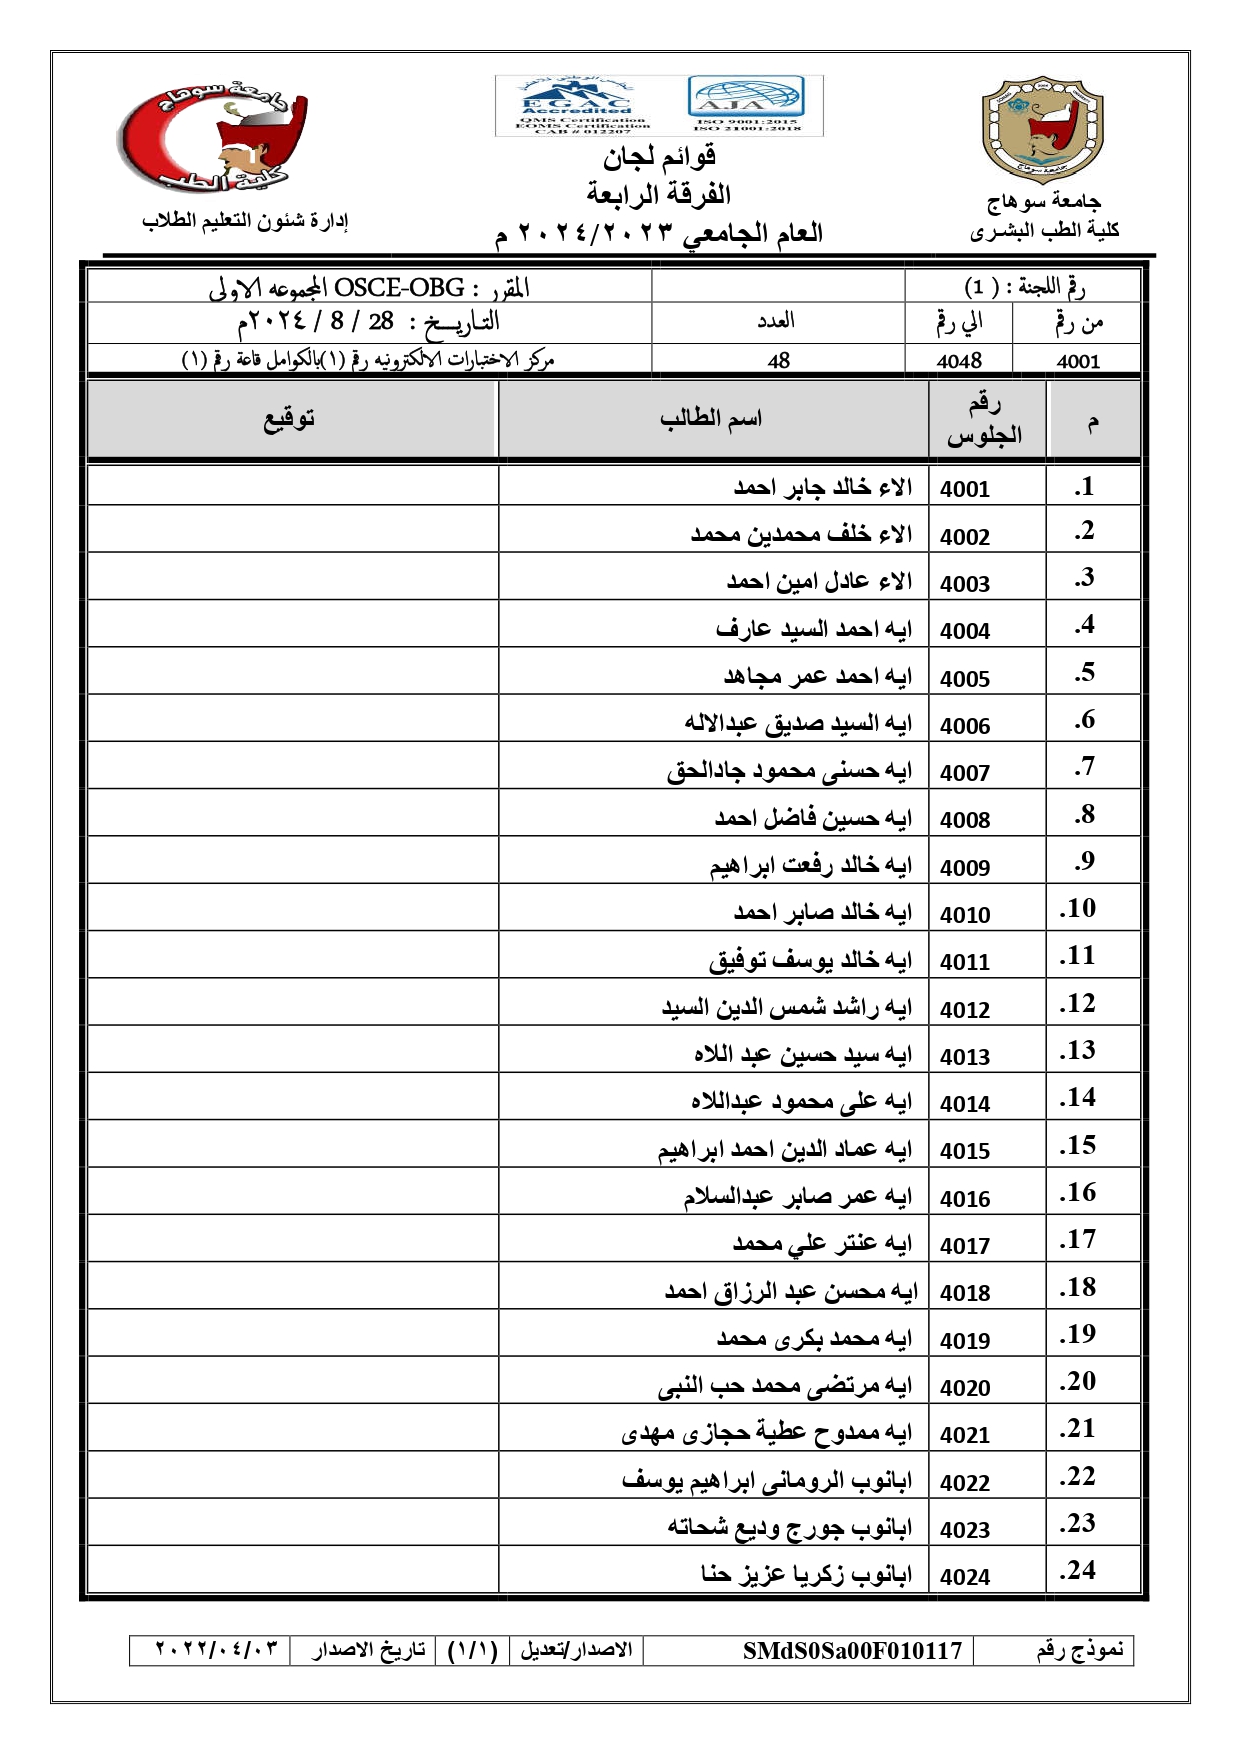 جامعة سوهاج
كلية الطب
إدارة شئون التعليم الطلاب
EGAC
Accredited
QMS Certification
EOMS Certification
CAB # 012207
AJA
ISO 9001:2015
ISO 21001:2018
قوائم لجان
الفرقة الرابعة
العام الجامعي ٢٠٢٤/٢٠٢٣ م
جامعة سوهاج
جامعة سوهاج
كلية الطب البشرى
رقم اللجنة : ( 1 )
المقرر : OSCE-OBG المجموعه الاولى
من رقم الي رقم العدد التاريــخ : 28 / 8 / ٢٠٢٤م
4001 4048 48 مركز الاختبارات الالكترونيه رقم (١)بالكوامل قاعة رقم (١)
م رقم الجلوس اسم الطالب توقيع
1. 4001 الاء خالد جابر احمد
2. 4002 الاء خلف محمدين محمد
3. 4003 الاء عادل امين احمد
4. 4004 ايه احمد السيد عارف
5. 4005 ايه احمد عمر مجاهد
6. 4006 ايه السيد صديق عبدالاله
7. 4007 ايه حسنى محمود جادالحق
8. 4008 ايه حسين فاضل احمد
9. 4009 ايه خالد رفعت ابراهيم
10. 4010 ايه خالد صابر احمد
11. 4011 ايه خالد يوسف توفيق
12. 4012 ايه راشد شمس الدين السيد
13. 4013 ايه سيد حسين عبد اللاه
14. 4014 ايه على محمود عبداللاه
15. 4015 ايه عماد الدين احمد ابراهيم
16. 4016 ايه عمر صابر عبدالسلام
17. 4017 ايه عنتر علي محمد
18. 4018 ايه محسن عبد الرزاق احمد
19. 4019 ايه محمد بكرى محمد
20. 4020 ايه مرتضى محمد حب النبى
21. 4021 ايه ممدوح عطية حجازى مهدى
22. 4022 ابانوب الرومانى ابراهيم يوسف
23. 4023 ابانوب جورج وديع شحاته
24. 4024 ابانوب زكريا عزيز حنا
نموذج رقم SMdS0Sa00F010117 الاصدار/تعديل (١/١) تاريخ الاصدار ٢٠٢٢/٠٤/٠٣